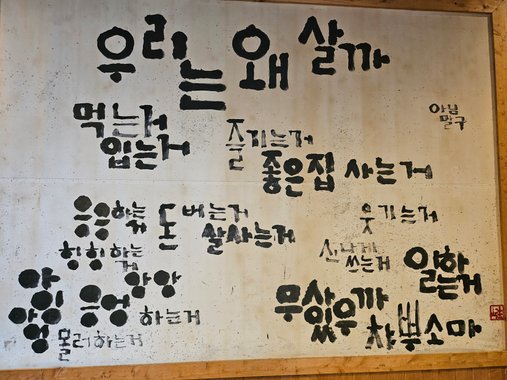 우리는 왜 살까
아님
말구
먹는거
입는거
즐기는거
좋은집 사는거
응응하는거
돈 버는거
잘사는거
웃기는거
힝힝하는거
신나게
쓰는거
일하는거
앙앙
응엉 하는거
몰러하는거
무상있우까
차뿌소마